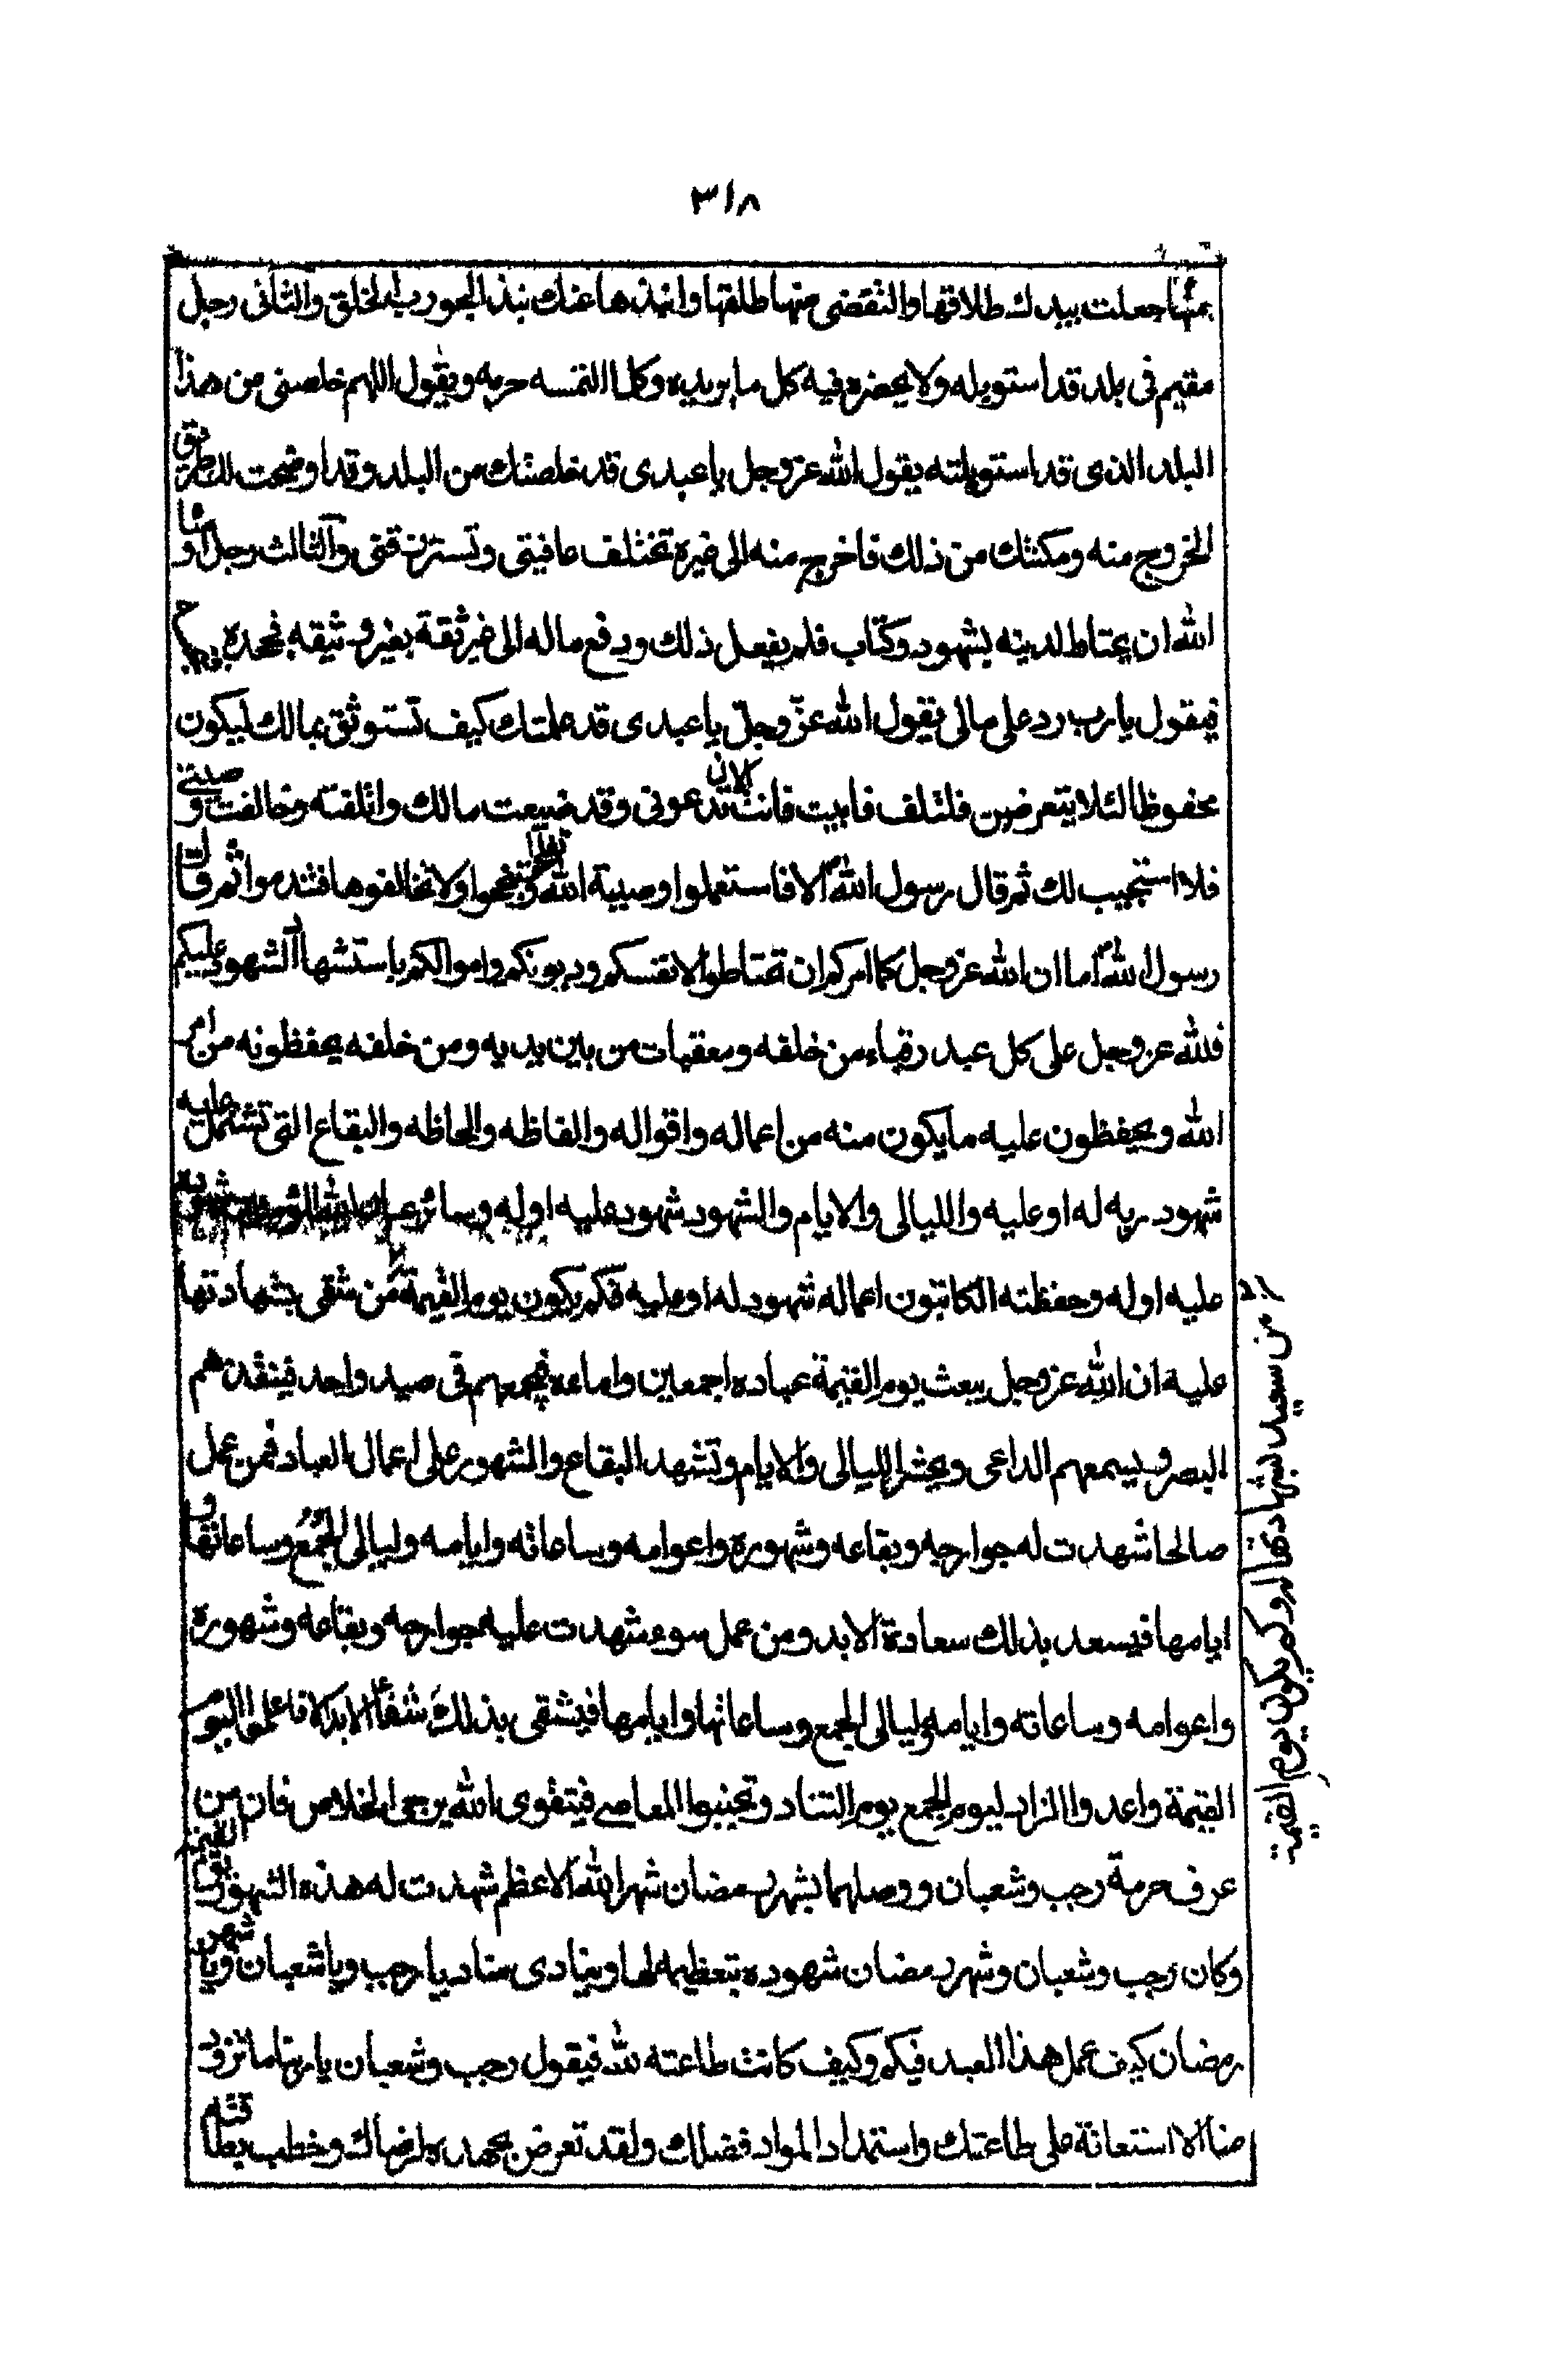 ٣١٨
منها جعلت بيدك طلاقها والتفصى منها طلقها وانبذها عنك نبذ الجورب الخلق والثانى رجل
مقيم فى بلد قد استوبله ولا يحضره فيه كل ما يريده وكل ما التمسه حرمه ويقول اللهم خلصنى من هذا
البلد الذى قد استوبلته يقول الله عز وجل يا عبدى قد خلصتك من البلد وقد اوضحت لك طريق
الخروج منه ومكنتك من ذلك فاخرج منه الى غيره تجتلب عافيتى وتسترزقنى والثالث رجل اوصاه
الله ان يحتاط لدينه بشهود وكتاب فلم يفعل ذلك ودفع ماله الى غير ثقة بغير وثيقه فجحده
فيقول يا رب رد على مالى يقول الله عز وجل يا عبدى قد علمتك كيف تستوثق بمالك ليكون
محفوظا لئلا يتعرض فلتلف فابيت فانت الان تدعونى وقد ضيعت مالك واتلفته وخالفت وصيتى
فلا استجيب لك ثم قال رسول الله الا فاستعملوا وصية الله تفلحوا وتنجحوا ولا تخالفوها فتندموا ثم قال
رسول الله اما ان الله عز وجل كما امركم ان تحتاطوا لانفسكم وديونكم واموالكم باستشهاد الشهود عليكم
فلله عز وجل على كل عبد رقباء من خلقه ومعقبات من بين يديه ومن خلفه يحفظونه من امر
الله ويحفظون عليه ما يكون منه من اعماله واقواله والفاظه والحاظه والبقاع التى تشتمل عليه
شهود ربه له او عليه والليالى والايام والشهود شهود عليه اوله وسائر
عليه اوله وحفظته الكاتبون اعماله شهود له او عليه فكم يكون يوم القيمة من شقى بشهادتها
عليه ان الله عز وجل يبعث يوم القيمة عباده اجمعين واماءه فيجمعهم فى صعيد واحد فينفذهم
البصر ويسمعهم الداعى ويحشر الليالى والايام وتشهد البقاع والشهور على اعمال العباد فمن عمل
صالحا شهدت له جوارحه وبقاعه وشهوره واعوامه وساعاته وايامه وليالى الجمع وساعاتها و
ايامها فيسعد بذلك سعادة الابد ومن عمل سوء شهدت عليه جوارحه وبقاعه وشهوره
واعوامه وساعاته وايامه وليالى الجمع وساعاتها وايامها فيشقى بذلك شقاء الابد الا فاعملوا اليوم
القيمة واعدوا الزاد ليوم الجمع يوم التناد وتجنبوا المعاصى فبتقوى الله يرجى الخلاص فان من
عرف حرمة رجب وشعبان ووصلهما بشهر رمضان شهر الله الاعظم شهدت له هذه الشهور يوم القيمة
وكان رجب وشعبان وشهر رمضان شهوده بتعظيمه لها وينادى مناد يا رجب ويا شعبان ويا شهر
رمضان كيف عمل هذا العبد فيكم وكيف كانت طاعته لله فيقول رجب وشعبان يا ربنا ما تزود
منا الا استعانة على طاعتك واستمدادا لمواد فضلك ولقد تعرض بجهده لرضاك وخطب بطاقته
من سعيد بشهادتها له وكم يكون يوم القيمة